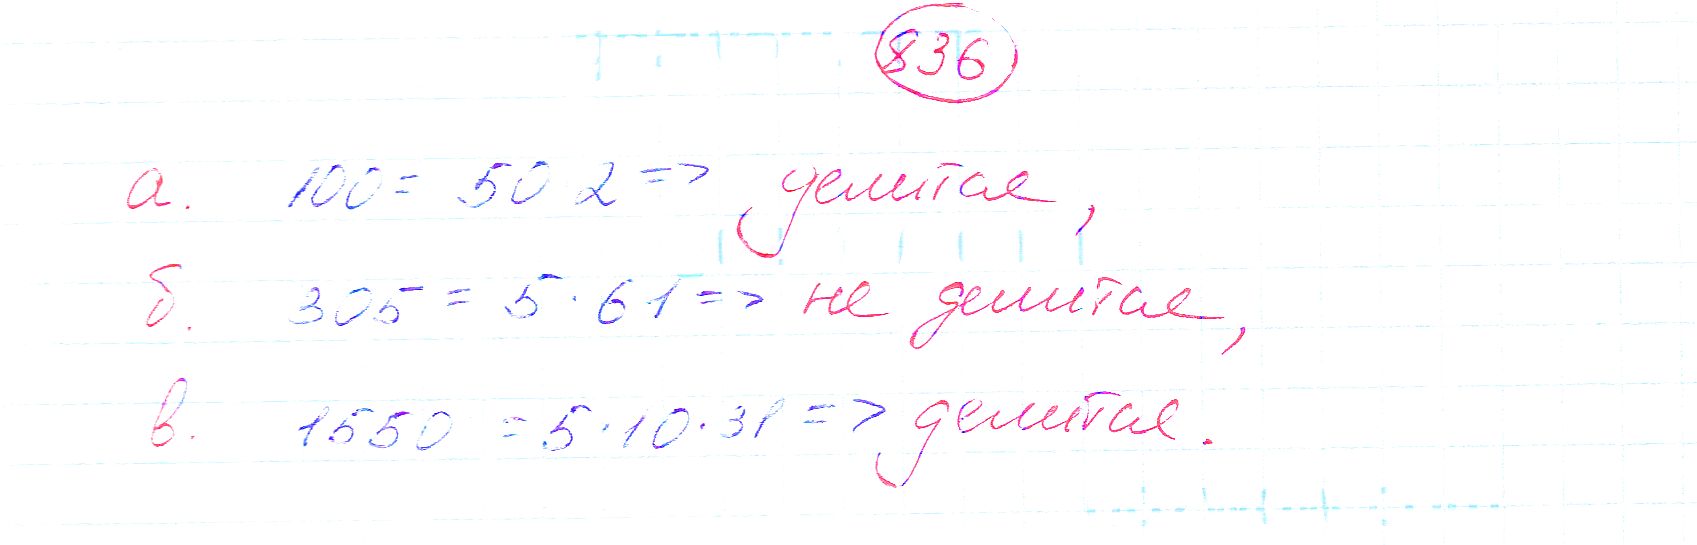 836
а. 100 = 50·2 => делится,
б. 305 = 5·61 => не делится,
в. 1550 = 5·10·31 => делится.